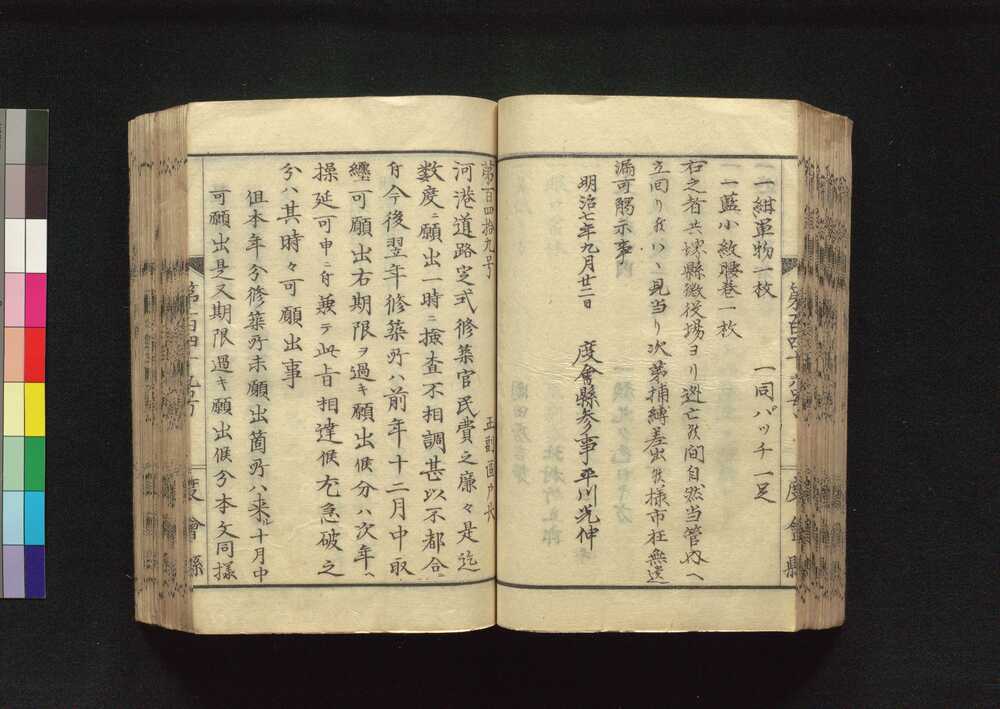 一紺単物一枚　一同パッチ一足
一藍小紋腰巻一枚
右之者共堺縣徴役場ヨリ逃亡候間自然当管内ヘ
立回リ候ハヽ見当リ次第捕縛差出候様市在無遺
漏可触示事
明治七年九月廿二日　度會縣参事平川光伸
第百四拾九号　正副區戸長
河港道路定式修築官民費之廉々是迄
数度ニ願出一時ニ撿査不相調甚以不都合
ニ付今後翌年修築所ハ前年十二月中取
纒可願出右期限ヲ過キ願出候分ハ次年ヘ
操延可申ニ付兼テ此旨相達候尤急破之
分ハ其時々可願出事
但本年分修築所未願出箇所ハ来ル十月中
可願出是又期限過キ願出候分本文同様
第百四十九号　度會縣
度會縣